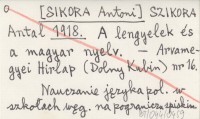 [SIKORA Antoni] SZIKORA
Antal 1918. A lengyelek és
a magyar nyelv. — Arvame-
gyei Hirlap (Dolny Kubin) nr 16.
Nauczanie języka pol. w
szkołach węg. na pograniczu spiskim